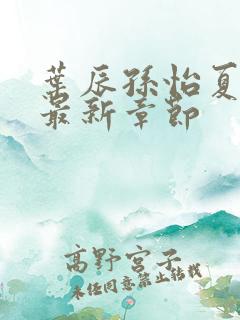 葉辰孫怡夏
最新章節
高野宮子
未經同意禁止轉載